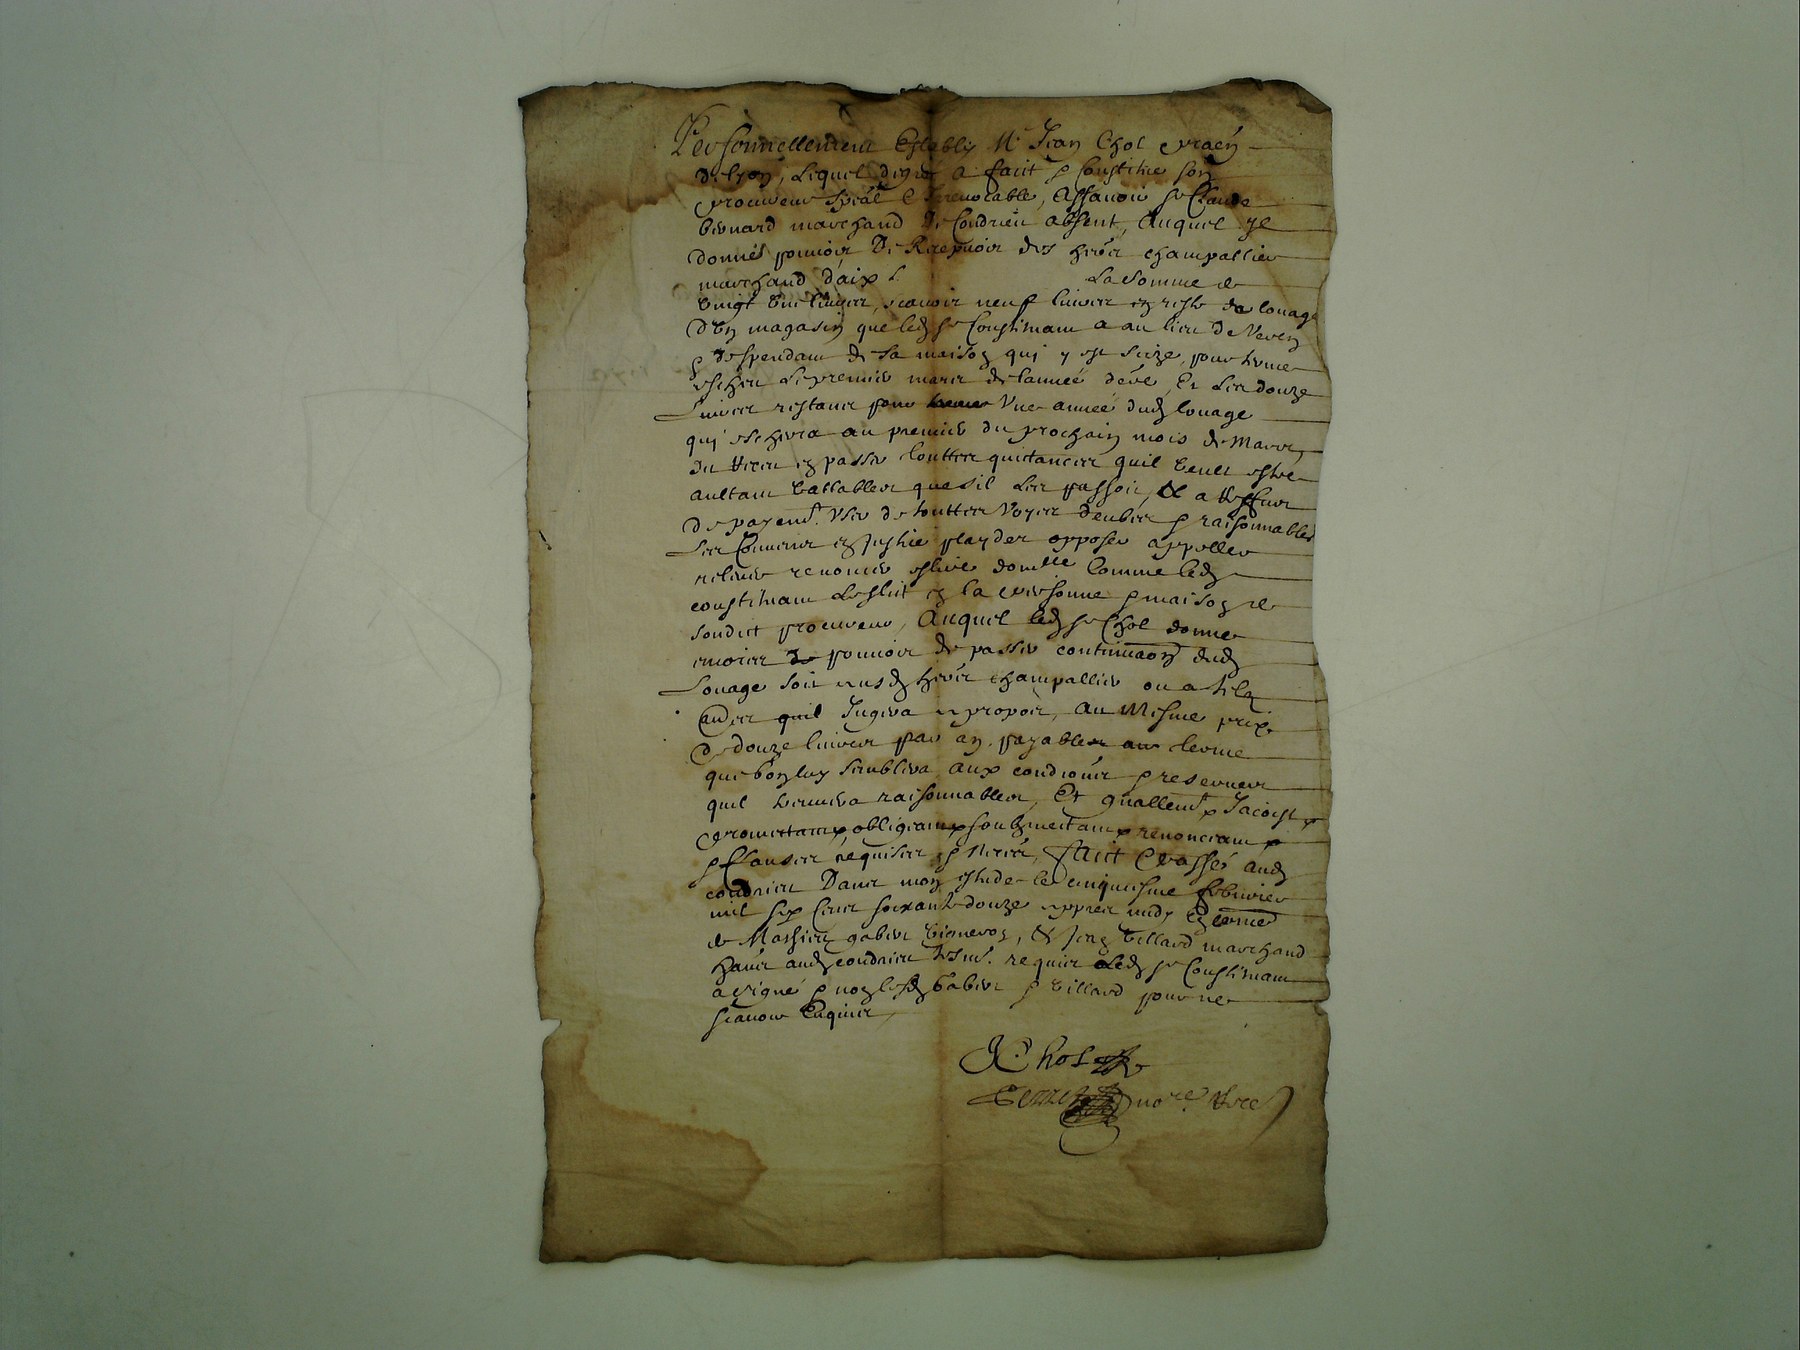 Personnellement Estably Mr Jean Chol
de lyon, Lequel degré a faict & Constitue son
procureur spéal & Irrevocable, Assavoir sr Claude
bernard marchand de Condrieu absent, Auquel Il
donne pouvoir De Recepvoir des herers champallier
marchand daix La somme de
vingt une livres, scavoir neuf livres en reste de louage
dun magasin que led sr Constituant a au lieu de
& despendant de sa maison qui y est size, pour
escheu le premier mars de lannée Et Les douze
Livres restans pour Une année dud louage
qui eschera au premier du prochain mois de Mars,
du en passer touttes quictances quil veult estre
aultant vallables que sil Les passoit, & a
de payemt. User de touttes Voyes deubes & raisonnables
Les Convenir en Justice playder opposer appeller
relever renoncer eslire domlle Comme led
constituant Leslit en la personne & maison de
sondict procureur, Auquel led sr Chol donne
encores pouvoir de passer continuaon dud
Louage soit ausd herers champallier ou a telz
aultres quil Jugera a propos, au Mesme prix
de douze livres par an, payables au terme
que bon luy semblera aux condions & reserves
quil trouvera raisonnables, Et gnallemt &
promettant, obligeant, soubzmettant, renonceant
& Clauses requises & Faict & Passé aud
condrieu Dans mon estude le cinquiesme febvrier
mil six Cens soixante douze appres midy En
de Mathieu gabert vigneron, & Jean villard marchand
hans aud condrieu tesms. requis Led sr Constituant
a signé & non lesd Gabert & villard pour ne
scavoir Enquis
J Chol
nore Rre